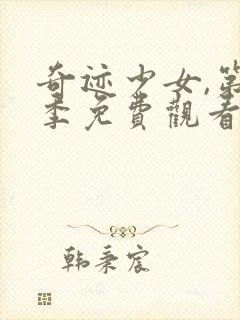 奇迹少女,第
季免費觀看
韩秉宸